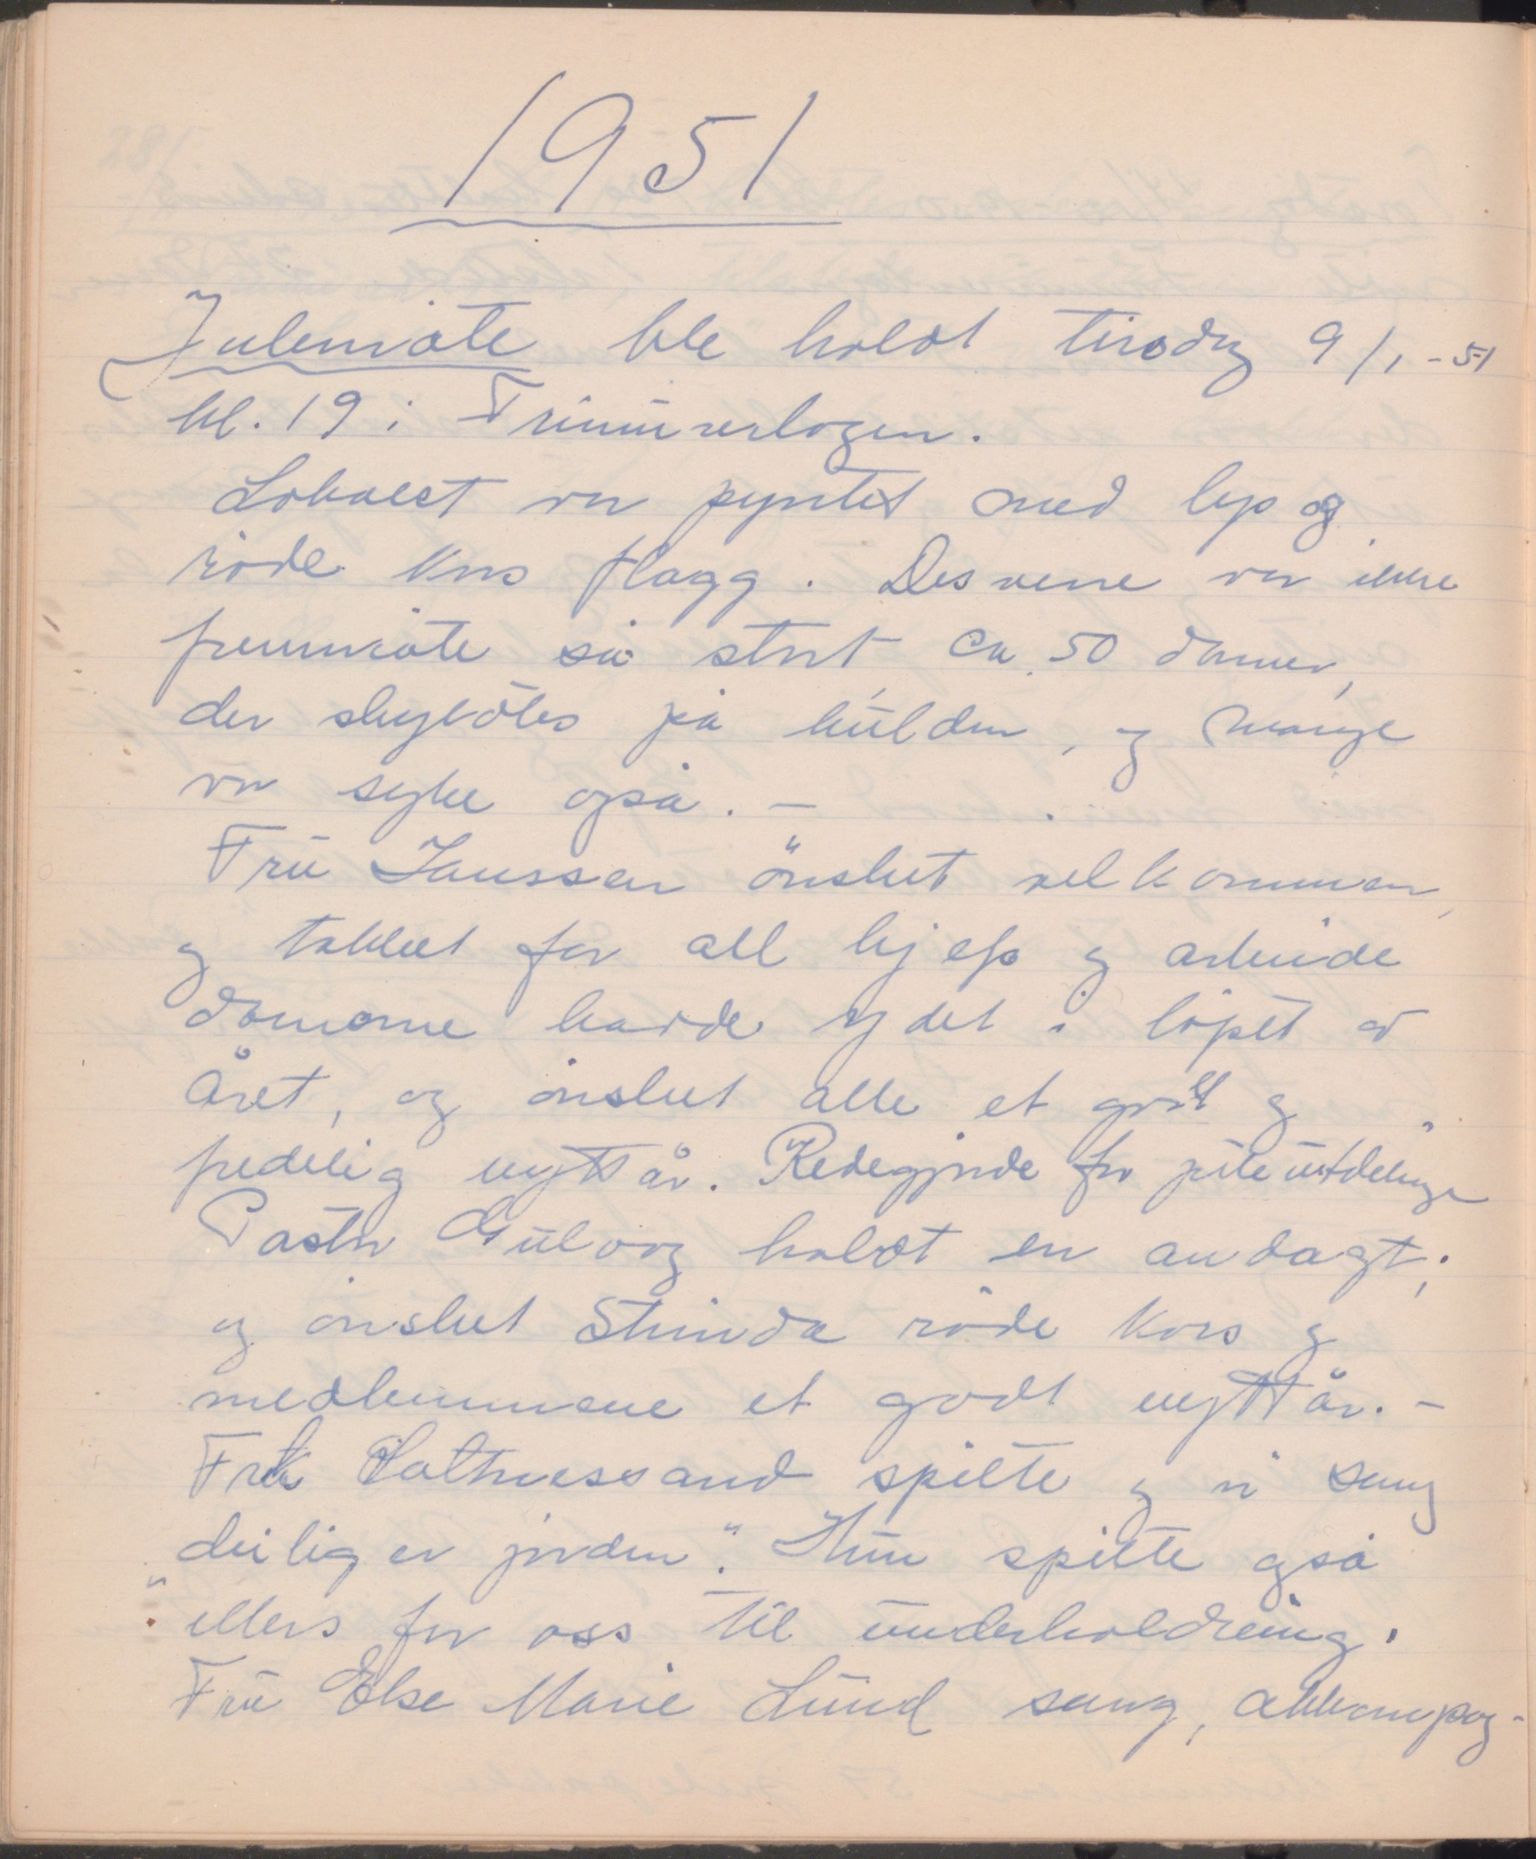 1951
Julemøte ble holdt tirsdag 9/1-51
kl. 19 i Frimurerlogen.
Lokalet var pyntet med lys og
røde kors flagg. Desverre var ikke
fremmøte så stort ca. 50 damer,
der skyldtes på kulden, og mange
var syke også. –
Fru Janssen ønsket velkommen,
og takket for all hjelp og arbeide
damene hadde ydet i løpet av
året, og ønsket alle et godt og
fredelig nytt år. Redegjorde for juleutdelinge
Pastor Gulvog holdt en andagt,
og ønsket Strinda røde kors og
medlemmene et godt nytt år. –
Frk spilte og vi sang
"deilig er jorden". Hun spilte også
ellers for oss til underholdning.
Fru Else Marie Lund sang, akkompag-